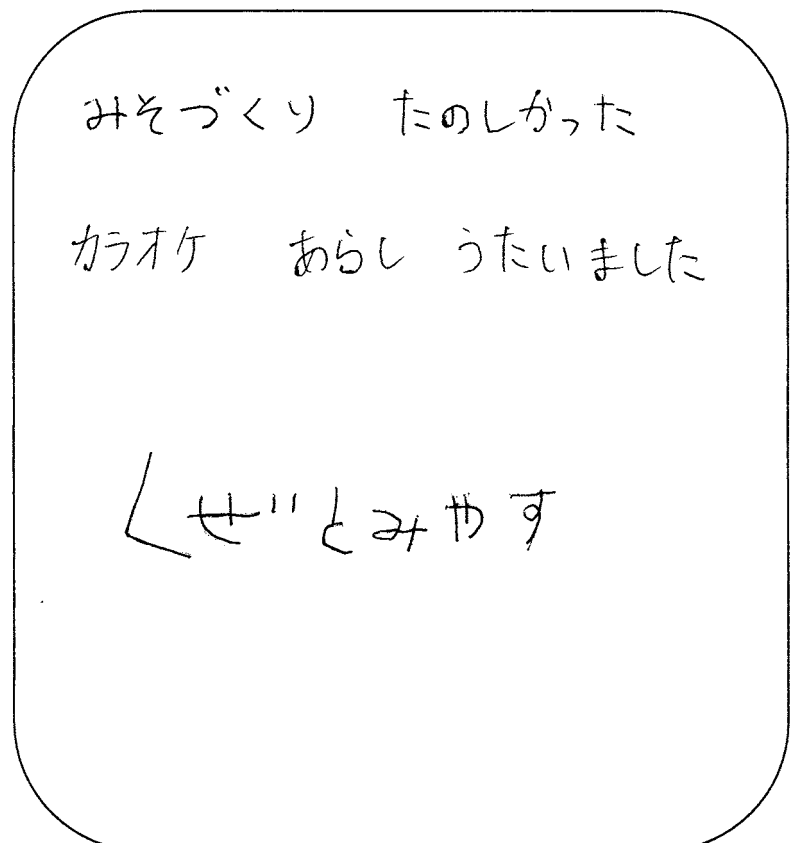 みそづくり たのしかった
カラオケ あらし うたいました
くぜとみやす